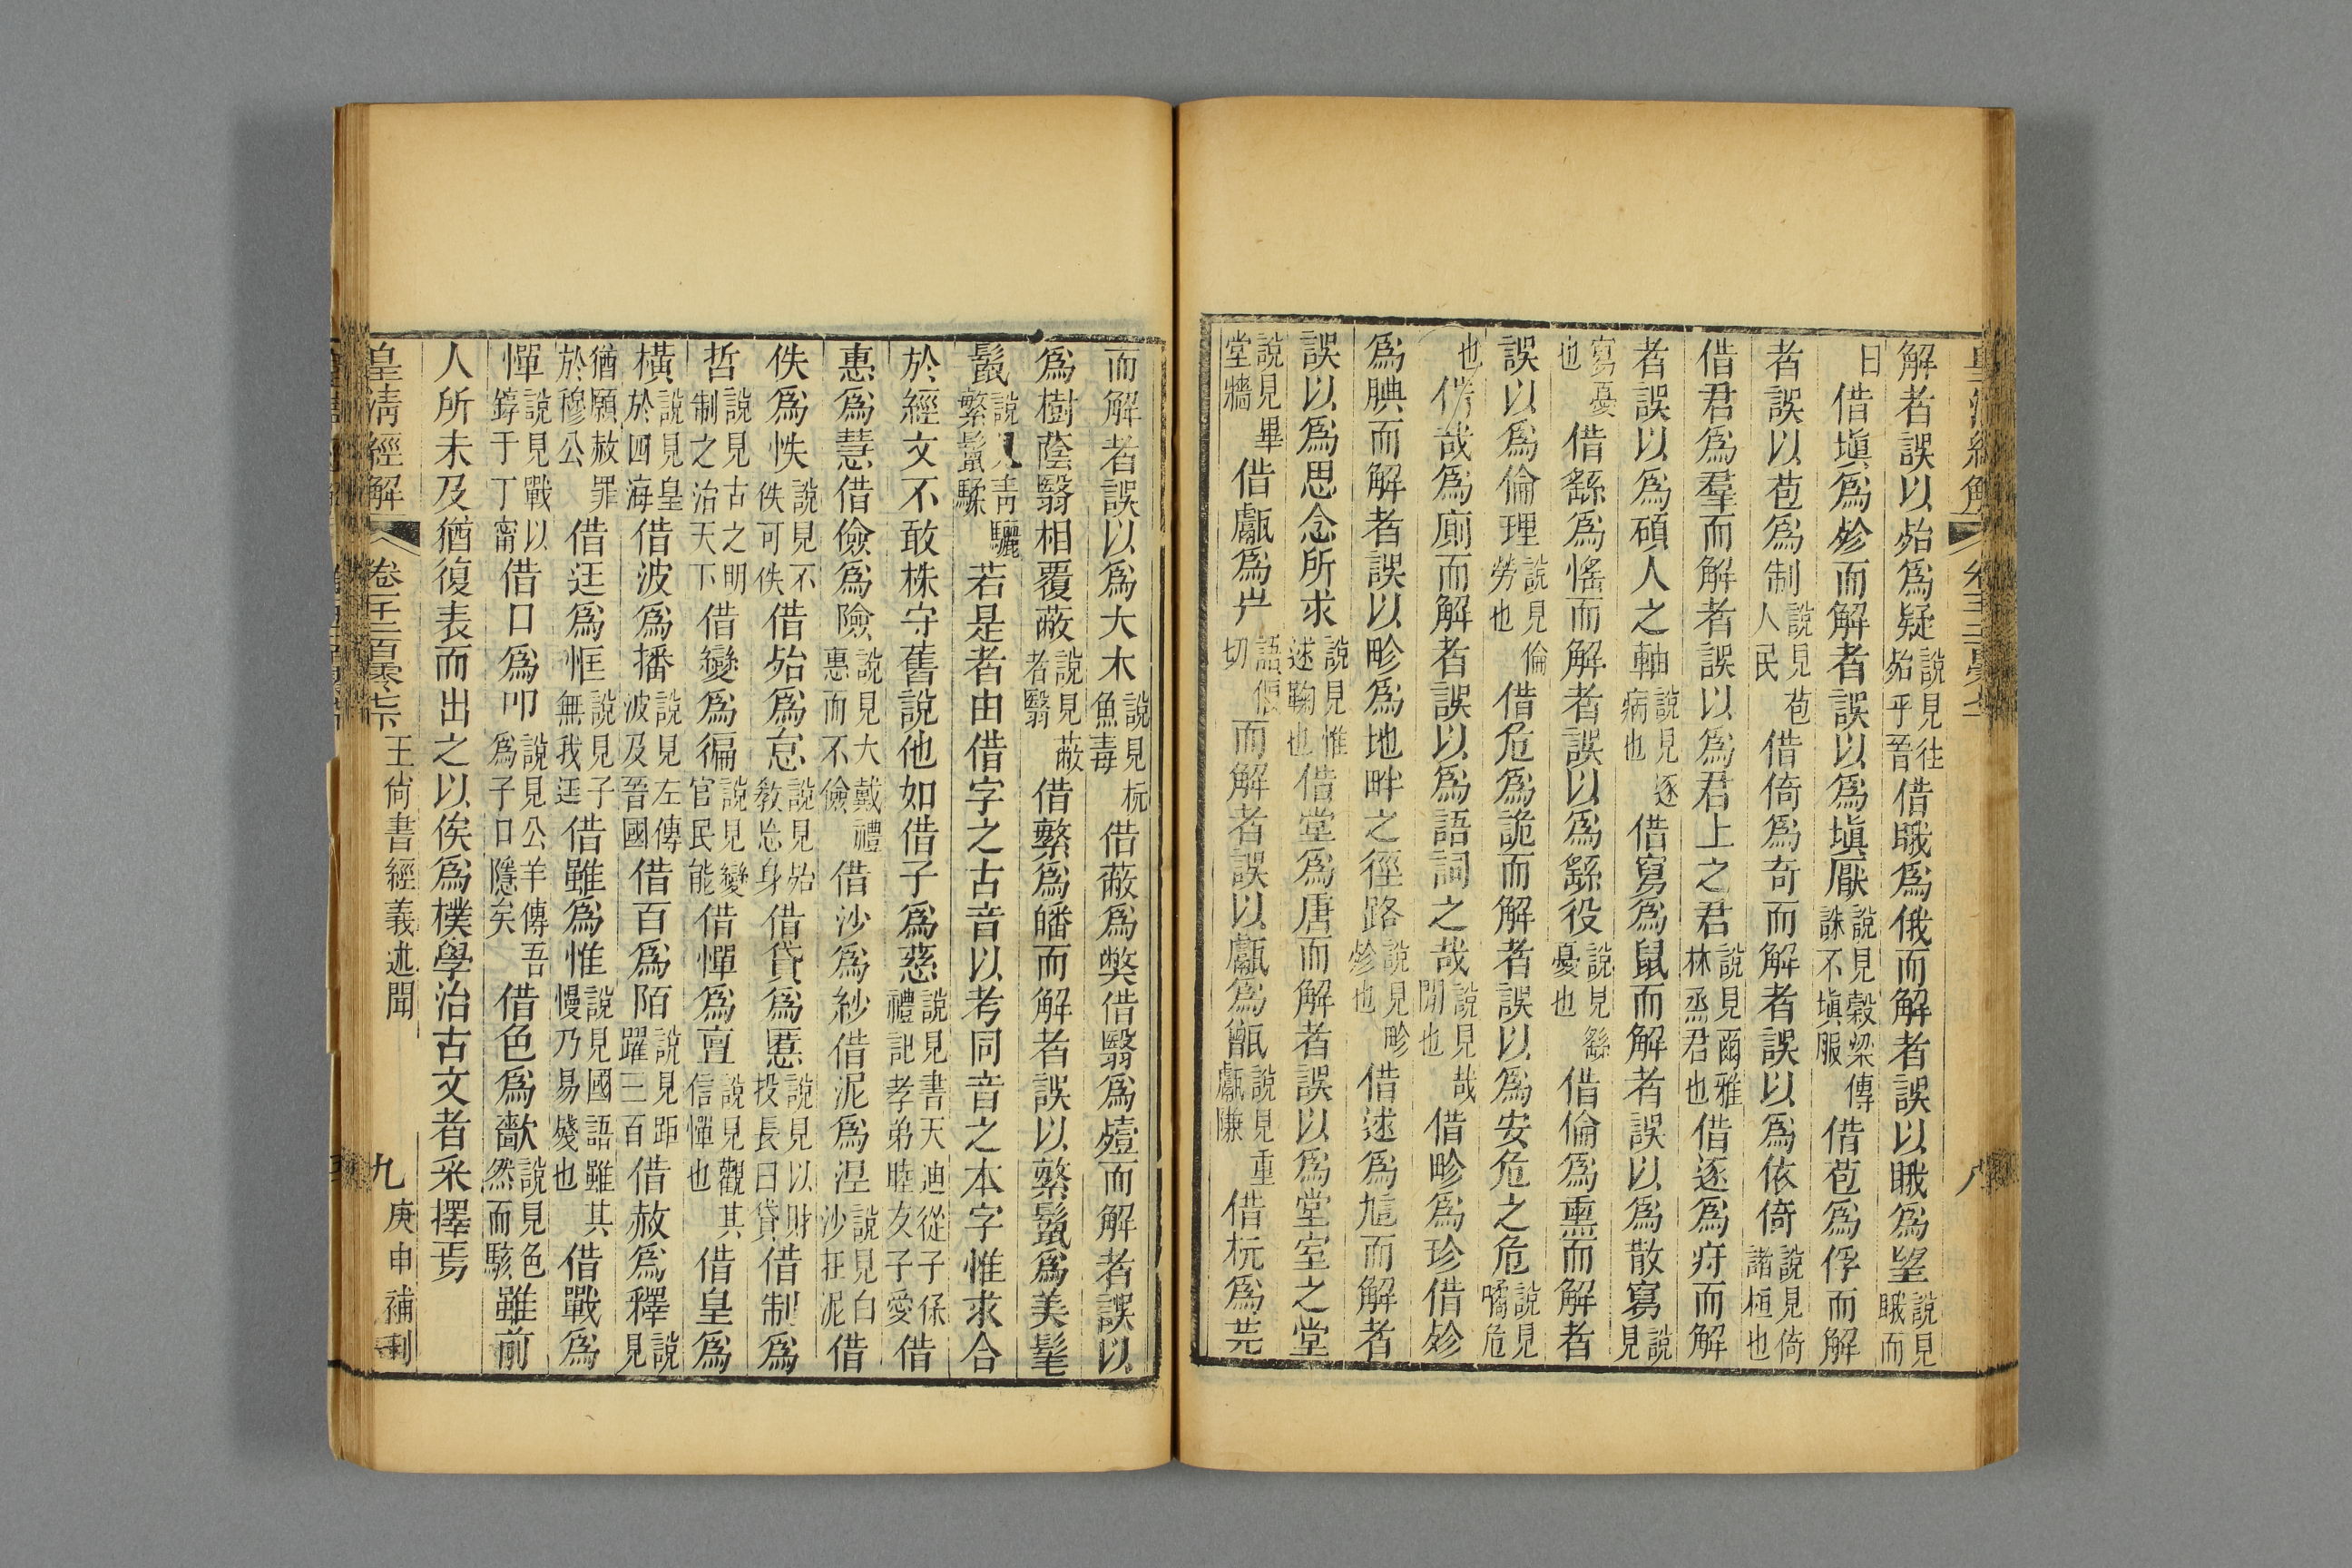 皇清經解
八
解者誤以始爲疑說見往始乎晉借睋爲俄而解者誤以睋爲望說見睋而
日借塡爲殄而解者誤以爲塡厭說見穀梁傳誅不塡服借苞爲俘而解
者誤以苞爲制說見苞人民借倚爲奇而解者誤以爲依倚說見倚諸桓也
借君爲羣而解者誤以爲君上之君說見爾雅林烝君也借逐爲疛而解
者誤以爲碩人之軸說見逐病也借寫爲鼠而解者誤以爲散寫說見
寫憂也借繇爲愮而解者誤以爲繇役說見繇憂也借倫爲熏而解者
誤以爲倫理說見倫勞也借危爲詭而解者誤以爲安危之危說見噊危
也借哉爲廁而解者誤以爲語詞之哉說見哉閒也借畛爲珍借殄
爲腆而解者誤以畛爲地畔之徑路說見畛殄也借逑爲訄而解者
誤以爲思念所求說見惟逑鞠也借堂爲唐而解者誤以爲堂室之堂
說見畢堂牆借甗爲屵語偃切而解者誤以甗爲甑說見重甗隒借杬爲芫
而解者誤以爲大木說見杬魚毒借蔽爲獘借翳爲殪而解者誤以
爲樹蔭翳相覆蔽說見蔽者翳借繁爲皤而解者誤以繁鬣爲美髦
鬣說見靑驪繁鬣騥若是者由借字之古音以考同音之本字惟求合
於經文不敢株守舊說他如借子爲慈說見書天迪從子保禮記孝弟睦友子愛借
惠爲慧借儉爲險說見大戴禮惠而不儉借沙爲紗借泥爲涅說見白沙在泥借
佚爲怢說見不佚可佚借始爲怠說見始敎怠身借貸爲慝說見以財投長曰貸借制爲
哲說見古之明制之治天下借變爲徧說見變官民能借憚爲亶說見觀其信憚也借皇爲
橫說見皇於四海借波爲播說見左傳波及晉國借百爲陌說見距躍三百借赦爲釋說見
猶願赦罪於穆公借迋爲恇說見子無我迋借雖爲惟說見國語雖其慢乃易殘也借戰爲
憚說見戰以錞于丁甯借口爲叩說見公羊傳吾爲子口隱矣借色爲歖說見色然而駭雖前
人所未及猶復表而出之以俟爲樸學治古文者采擇焉
皇清經解
卷一千二百零七下
王尙書經義述聞
九
庚申補刊